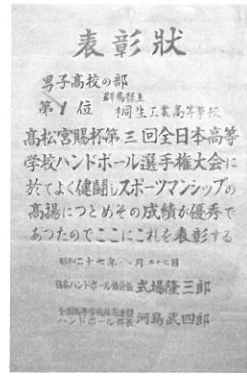 表彰狀
男子高校の部
第1位 群馬縣立 桐生工業高等学校
高松宮賜杯第三回全日本高等
学校ハンドボール選手権大会に
於てよく健闘しスポーツマンシップの
高揚につとめその成績が優秀で
あつたのでここにこれを表彰する
昭和二十七年八月 日
日本ハンドボール協会長 式場隆三郎
全国高等学校体育連盟
ハンドボール部長 河島武四郎